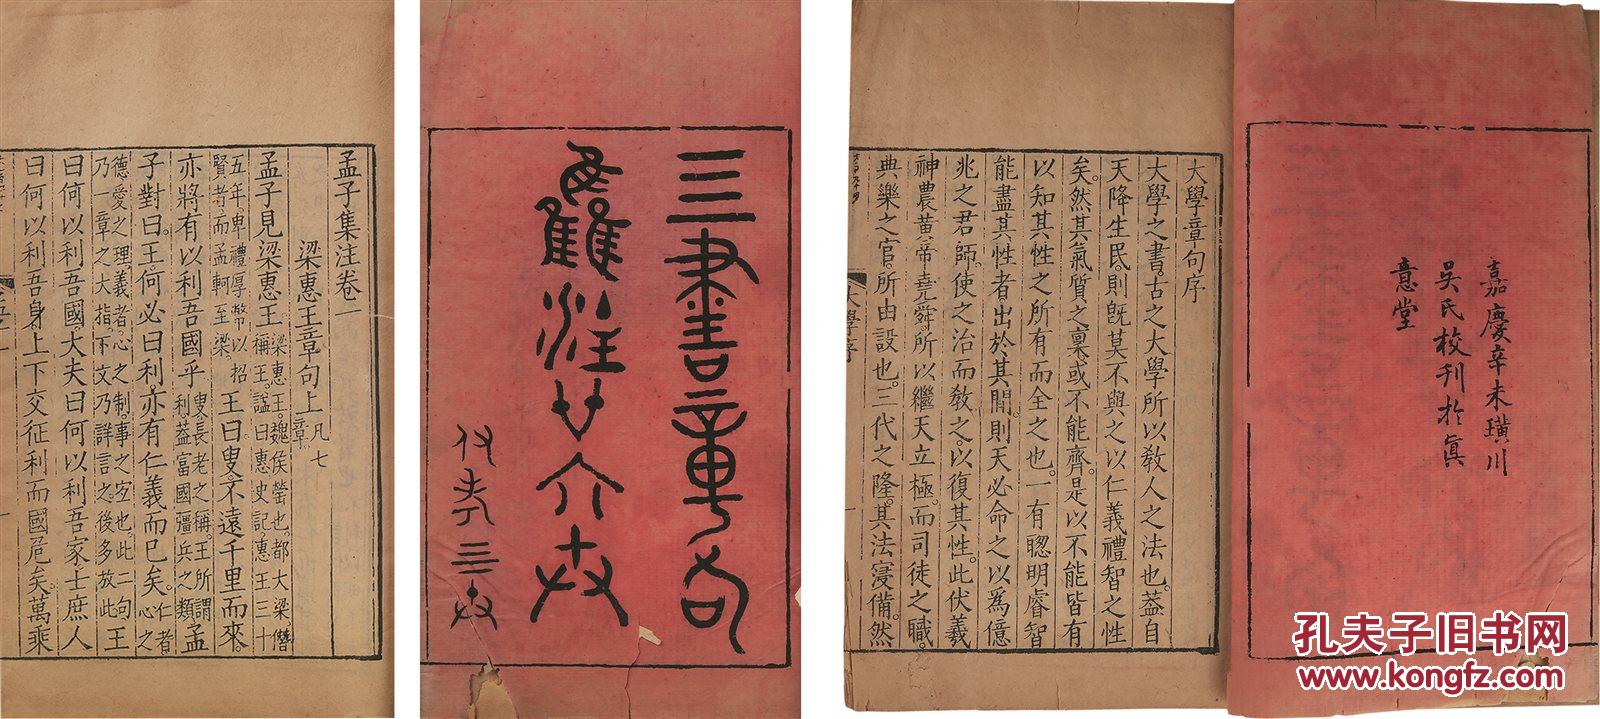 孟子集注卷一
梁惠王章句上 凡七章
孟子見梁惠王 梁惠王。魏侯罃也。都大梁。僭稱王。諡曰惠。史記。惠王三十
五年。卑禮厚幣以招賢者。而孟軻至梁。 王曰。叟。不遠千里而來。
亦將有以利吾國乎 叟。長老之稱。王所謂利。蓋富國彊兵之類 孟
子對曰。王。何必曰利。亦有仁義而已矣。 仁者。心之
德。愛之理。義者。心之制。事之宜也。此二句乃一章之大指。下文乃詳言之。後多放此。 王
曰。何以利吾國。大夫曰。何以利吾家。士庶人
曰。何以利吾身。上下交征利。而國危矣。萬乘
三書章句
注廿
大學章句序
大學之書。古之大學所以敎人之法也。蓋自
天降生民。則旣莫不與之以仁義禮智之性
矣。然其氣質之稟。或不能齊。是以不能皆有
以知其性之所有而全之也。一有聰明睿智
能盡其性者。出於其閒。則天必命之以爲億
兆之君師。使之治而敎之。以復其性。此伏羲
神農黃帝堯舜。所以繼天立極。而司徒之職。
典樂之官。所由設也。三代之隆。其法寖備。然
大學序
嘉慶辛未璜川
吳氏校刊於眞
意堂
孔夫子旧书网
www.kongfz.com